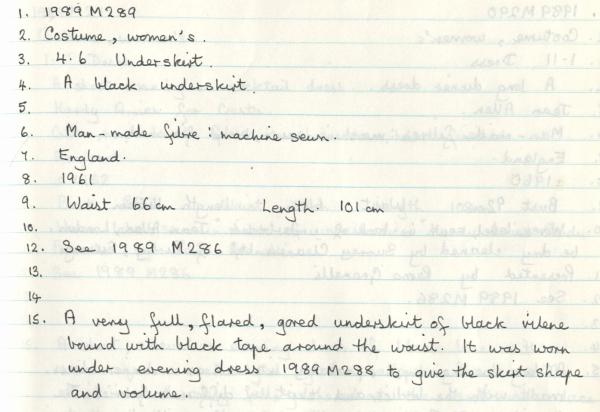 1. 1989 M289
2. Costume, women's.
3. 4.6 Underskirt.
4. A black underskirt.
5.
6. Man-made fibre: machine sewn.
7. England.
8. 1961
9. Waist 66cm Length. 101cm
10.
12. See 1989 M286
13.
14
15. A very full, flared, gored underskirt of black vilene
bound with black tape around the waist. It was worn
under evening dress 1989 M288 to give the skirt shape
and volume.